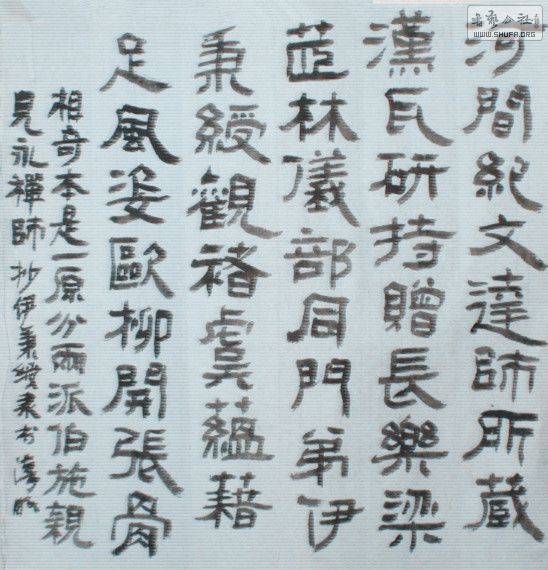 河間紀文達師所蔵
漢瓦研持贈長樂梁
茝林儀部同門弟伊
秉綬觀褚虞蘊藉
足風姿歐柳開張骨
相奇本是一原分兩派伯施親
見永禪師 抄伊秉綬隶书
書藝公社
WWW.SHUFA.ORG